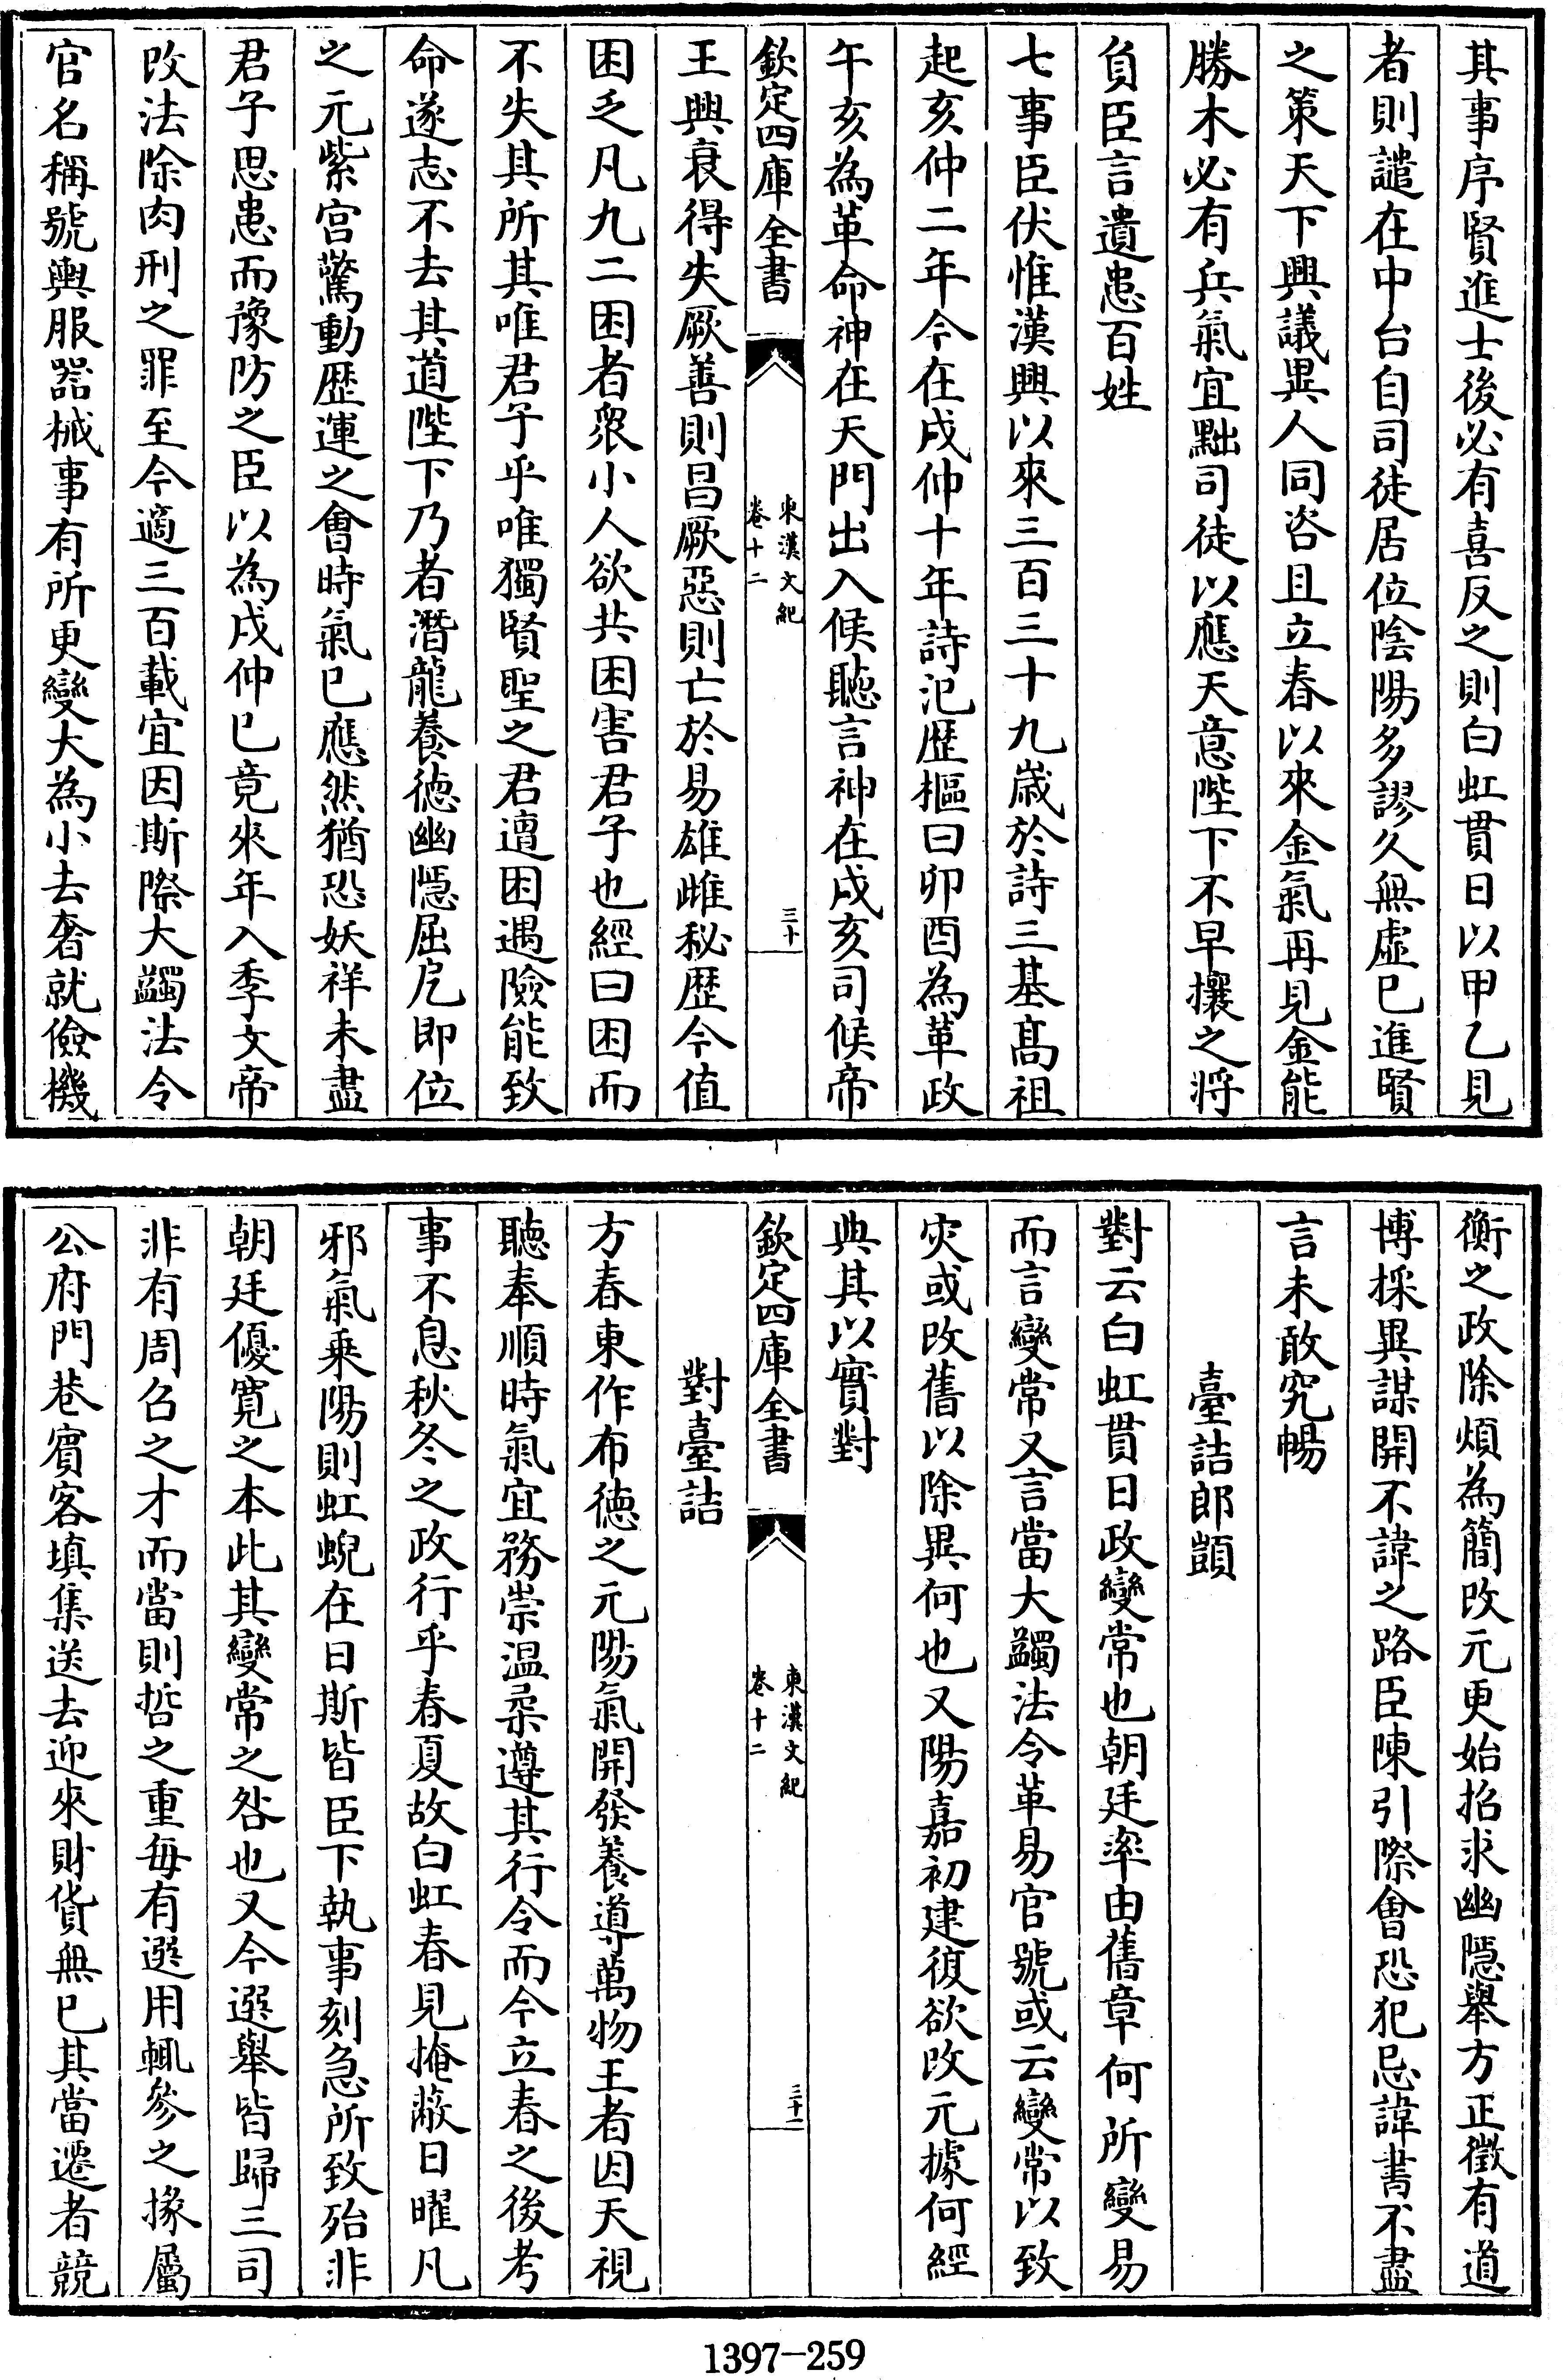 其事序賢進士後必有喜反之則白虹貫日以甲乙見
者則譴在中台自司徒居位陰陽多謬久無虛已進賢
之策天下興議異人同咨且立春以來金氣再見金能
勝木必有兵氣宜黜司徒以應天意陛下不早攘之將
負臣言遺患百姓
七事臣伏惟漢興以來三百三十九歲於詩三基髙祖
起亥仲二年今在戌仲十年詩氾歴樞曰卯酉為革政
午亥為革命神在天門出入候聽言神在戌亥司候帝
欽定四庫全書
東漢文紀
卷十二
三十
王興衰得失厥善則昌厥惡則亡於易雄雌秘歴今值
困乏凡九二困者衆小人欲共困害君子也經曰困而
不失其所其唯君子乎唯獨賢聖之君遭困遇險能致
命遂志不去其道陛下乃者潛龍養徳幽隱屈戹即位
之元紫宫驚動歴運之會時氣已應然猶恐妖祥未盡
君子思患而豫防之臣以為戌仲已竟來年入季文帝
改法除肉刑之罪至今適三百載宜因斯際大蠲法令
官名稱號輿服器械事有所更變大為小去奢就儉機
衡之政除煩為簡改元更始招求幽隱舉方正徵有道
博採異謀開不諱之路臣陳引際會恐犯忌諱書不盡
言未敢究暢
臺詰郎顗
對云白虹貫日政變常也朝廷率由舊章何所變易
而言變常又言當大蠲法令革易官號或云變常以致
灾或改舊以除異何也又陽嘉初建復欲改元據何經
典其以實對
欽定四庫全書
東漢文紀
卷十二
三十一
對臺詰
方春東作布徳之元陽氣開發養導萬物王者因天視
聽奉順時氣宜務崇温柔遵其行令而今立春之後考
事不息秋冬之政行乎春夏故白虹春見掩蔽日曜凡
邪氣乗陽則虹蜺在日斯皆臣下執事刻急所致殆非
朝廷優寛之本此其變常之咎也又今選舉皆歸三司
非有周召之才而當則哲之重毎有選用輒參之掾屬
公府門巷賔客填集送去迎來財貨無已其當遷者競
1397-259